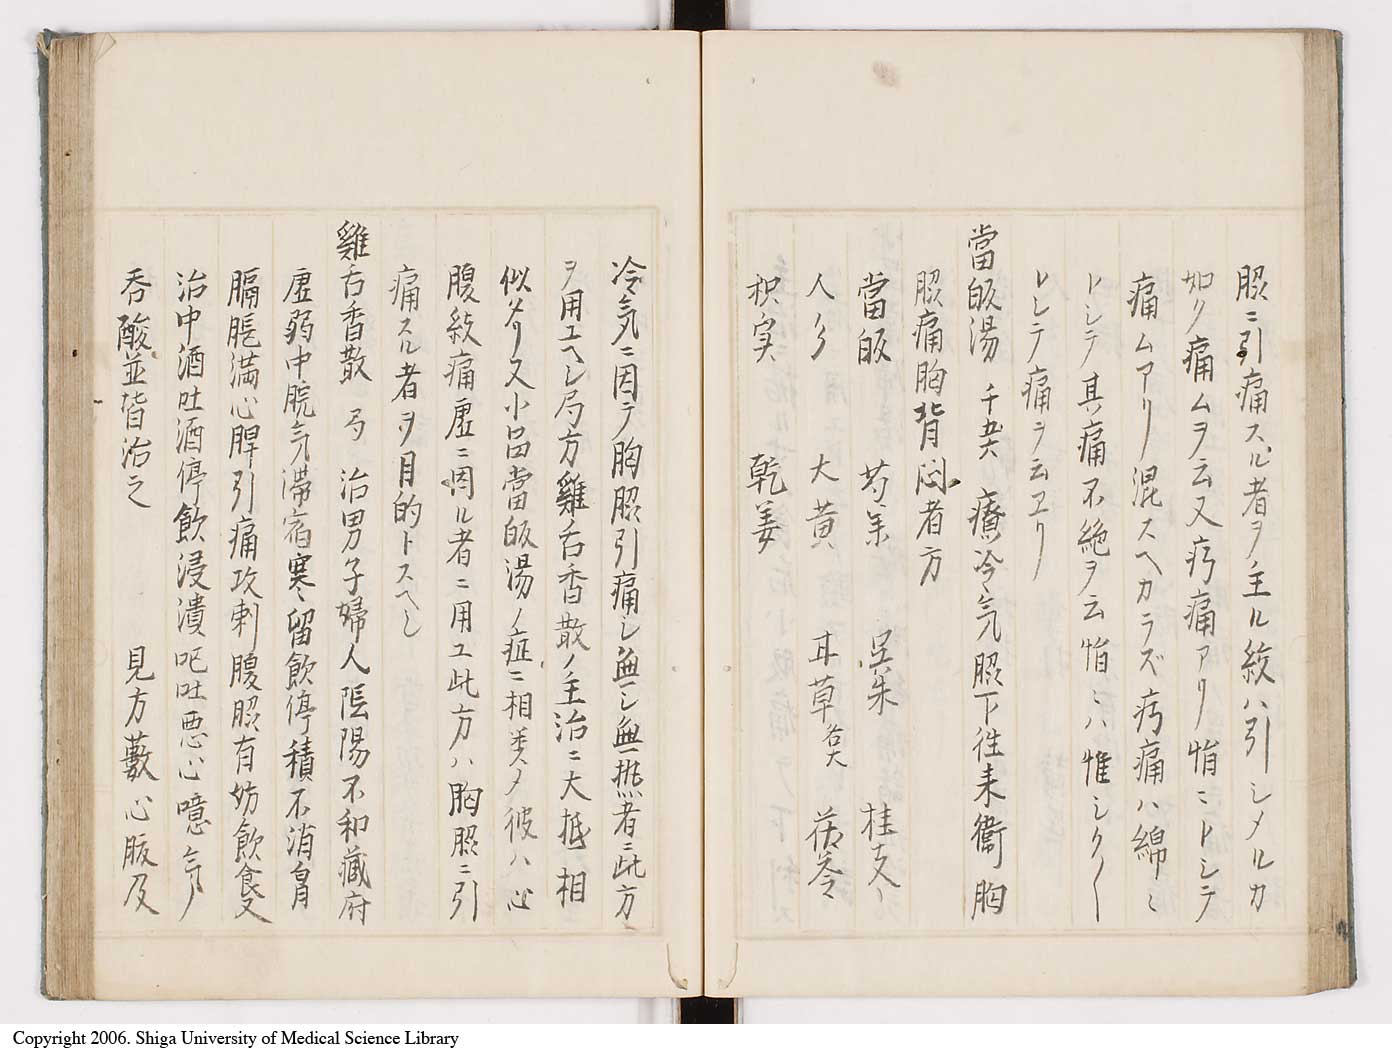 脇ニ引痛スル者ヲ主ル絞ハ引シメルカ
如ク痛ムヲ云又㽲痛アリ悁ニトシテ
痛ムアリ混スヘカラズ㽲痛ハ綿ミ
トシテ其痛不絶ヲ云悁ミハ惟シク
トシテ痛ヲ云ヱリ
當皈湯 千失 療冷气脇下往来衝胸
脇痛胸背悶者方
當皈 芍薬 呉朱 桂支
人参 大黄 甘草 各大 茯苓
枳実 乾姜
冷気ニ因テ胸脇引痛シ無シ無熱者ニ此方
ヲ用ユヘシ局方雞舌香散ノ主治ニ大抵相
似タリ又小品當皈湯ノ症ニ相类メ彼ハ心
腹絞痛虚ニ因ル者ニ用ユ此方ハ胸脇ニ引
痛スル者ヲ目的トスヘシ
雞舌香散 局 治男子婦人陰陽不和藏府
虚弱中脘气滞宿寒留飲停積不消胃
膈脹満心脾引痛攻刺腹脇有妨飲食又
治中酒吐酒停飲浸漬呕吐悪心噫气
呑酸並皆治之 見方藪心腹及
Copyright 2006. Shiga University of Medical Science Library